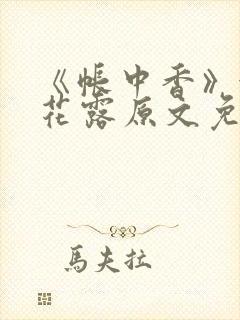 《帐中香》
花露原文免
馬夫拉